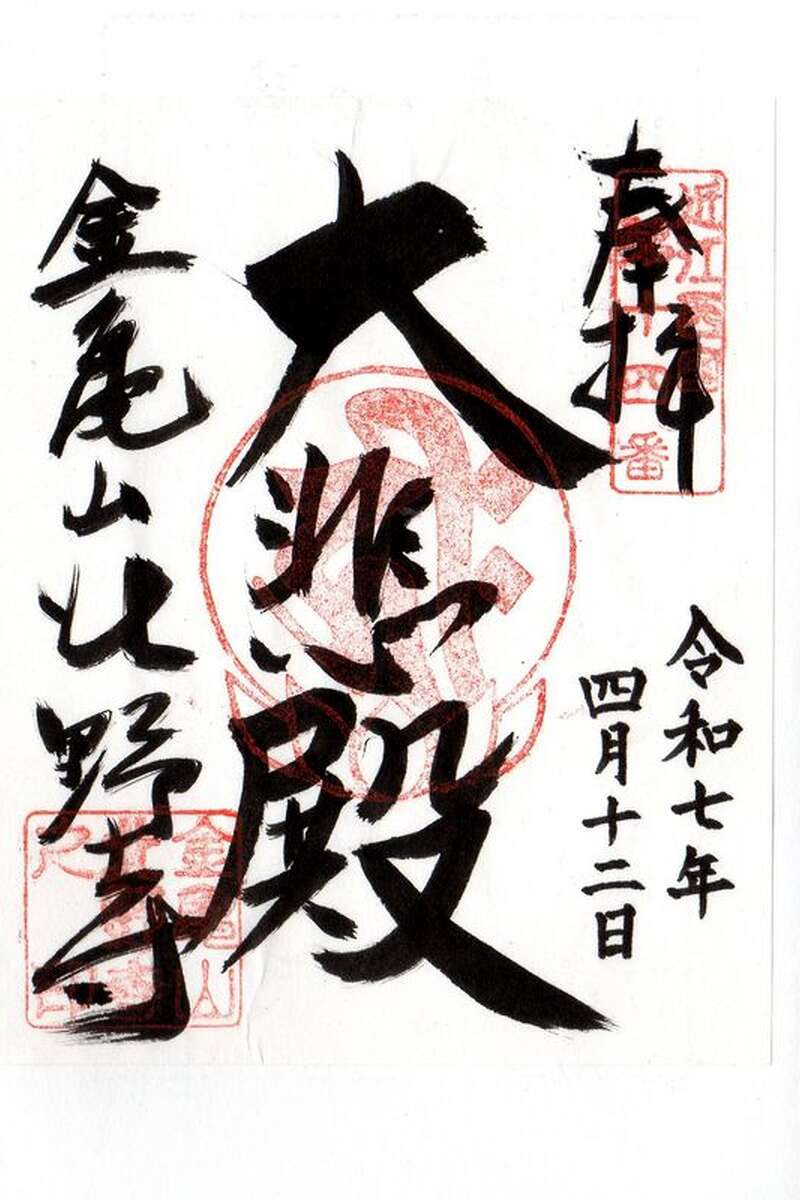 奉拝
近江西国
十四番
令和七年
四月十二日
大悲殿
金亀山北野寺
金亀山